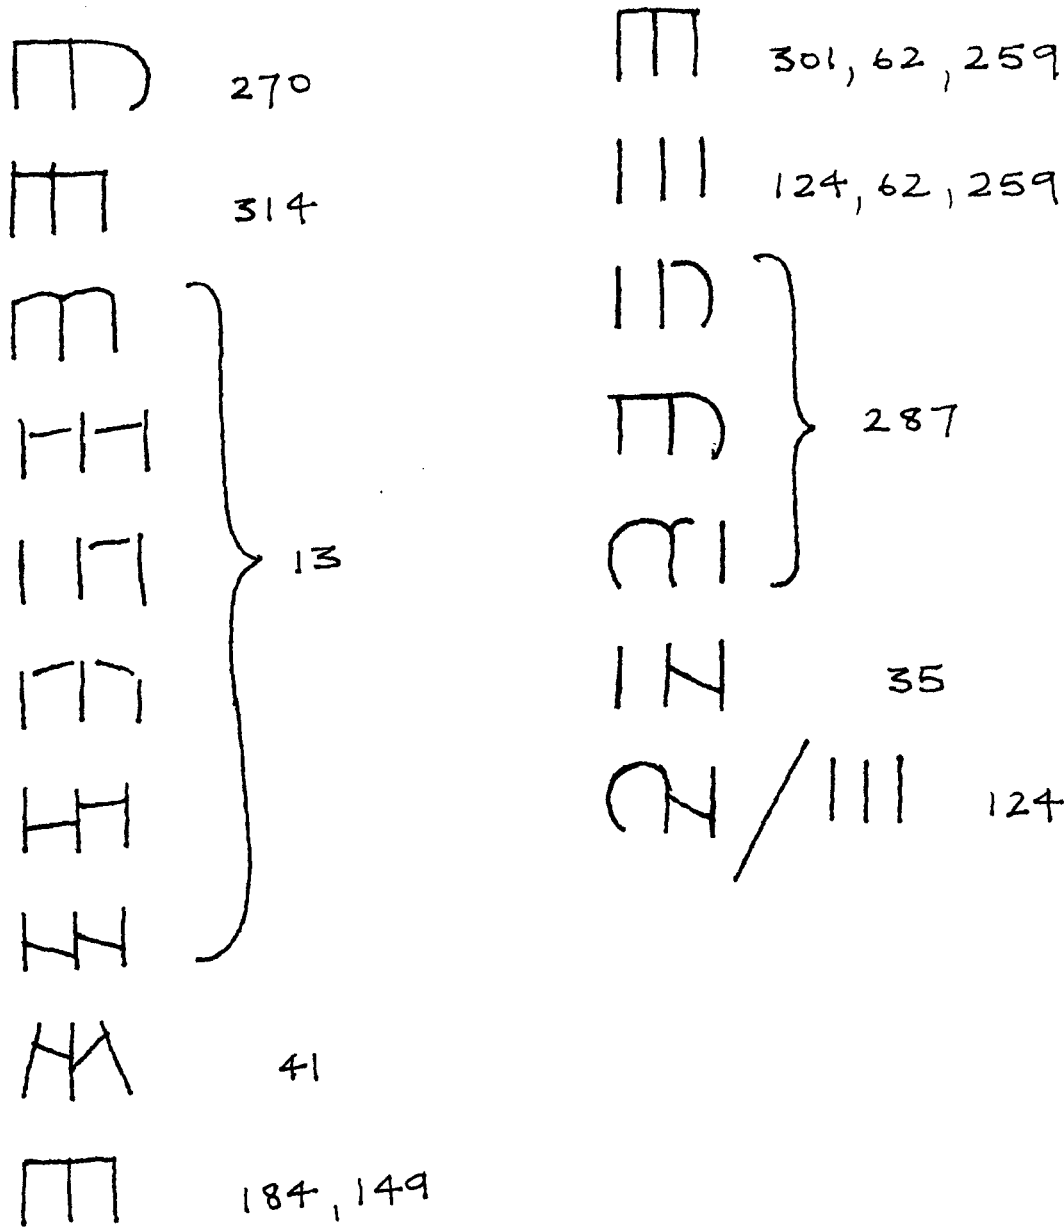 270
314
13
41
184, 149
301, 62, 259
124, 62, 259
287
35
124